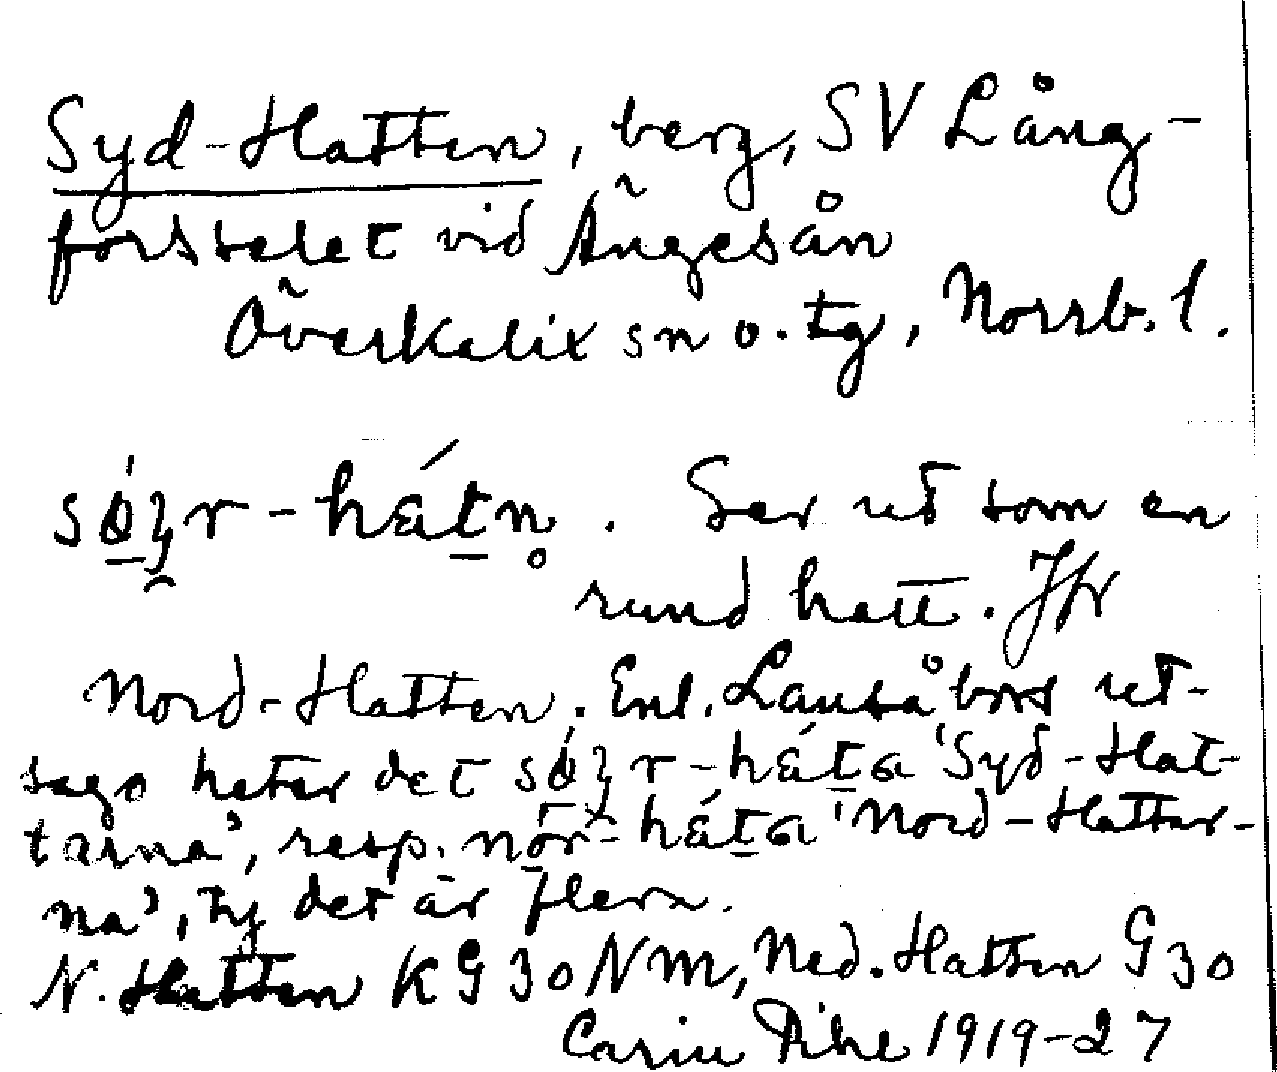 Syd-Hatten, berg, SV Lång-
forsselet vid Ängesån
Överkalix sn o. tg, Norrb. l.
Ser ut som en
rund hatt. Jfr
Nord-Hatten. Enl. Lansåbors ut-
sago heter det 'Syd-Hat-
tarna', resp. 'Nord-Hattar-
na', ty det är flera.
N. Hatten KG 30 NM, Ned. Hatten G 30
Carin Pihl 1919-27